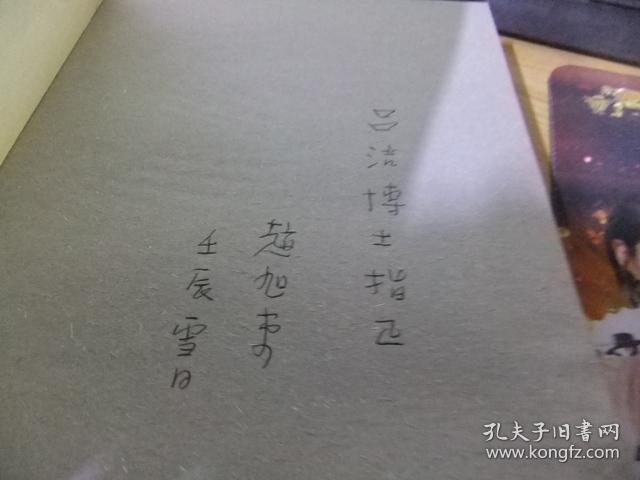 吕洁博士指正
赵旭东
壬辰雪日
孔夫子旧书网
www.kongfz.com